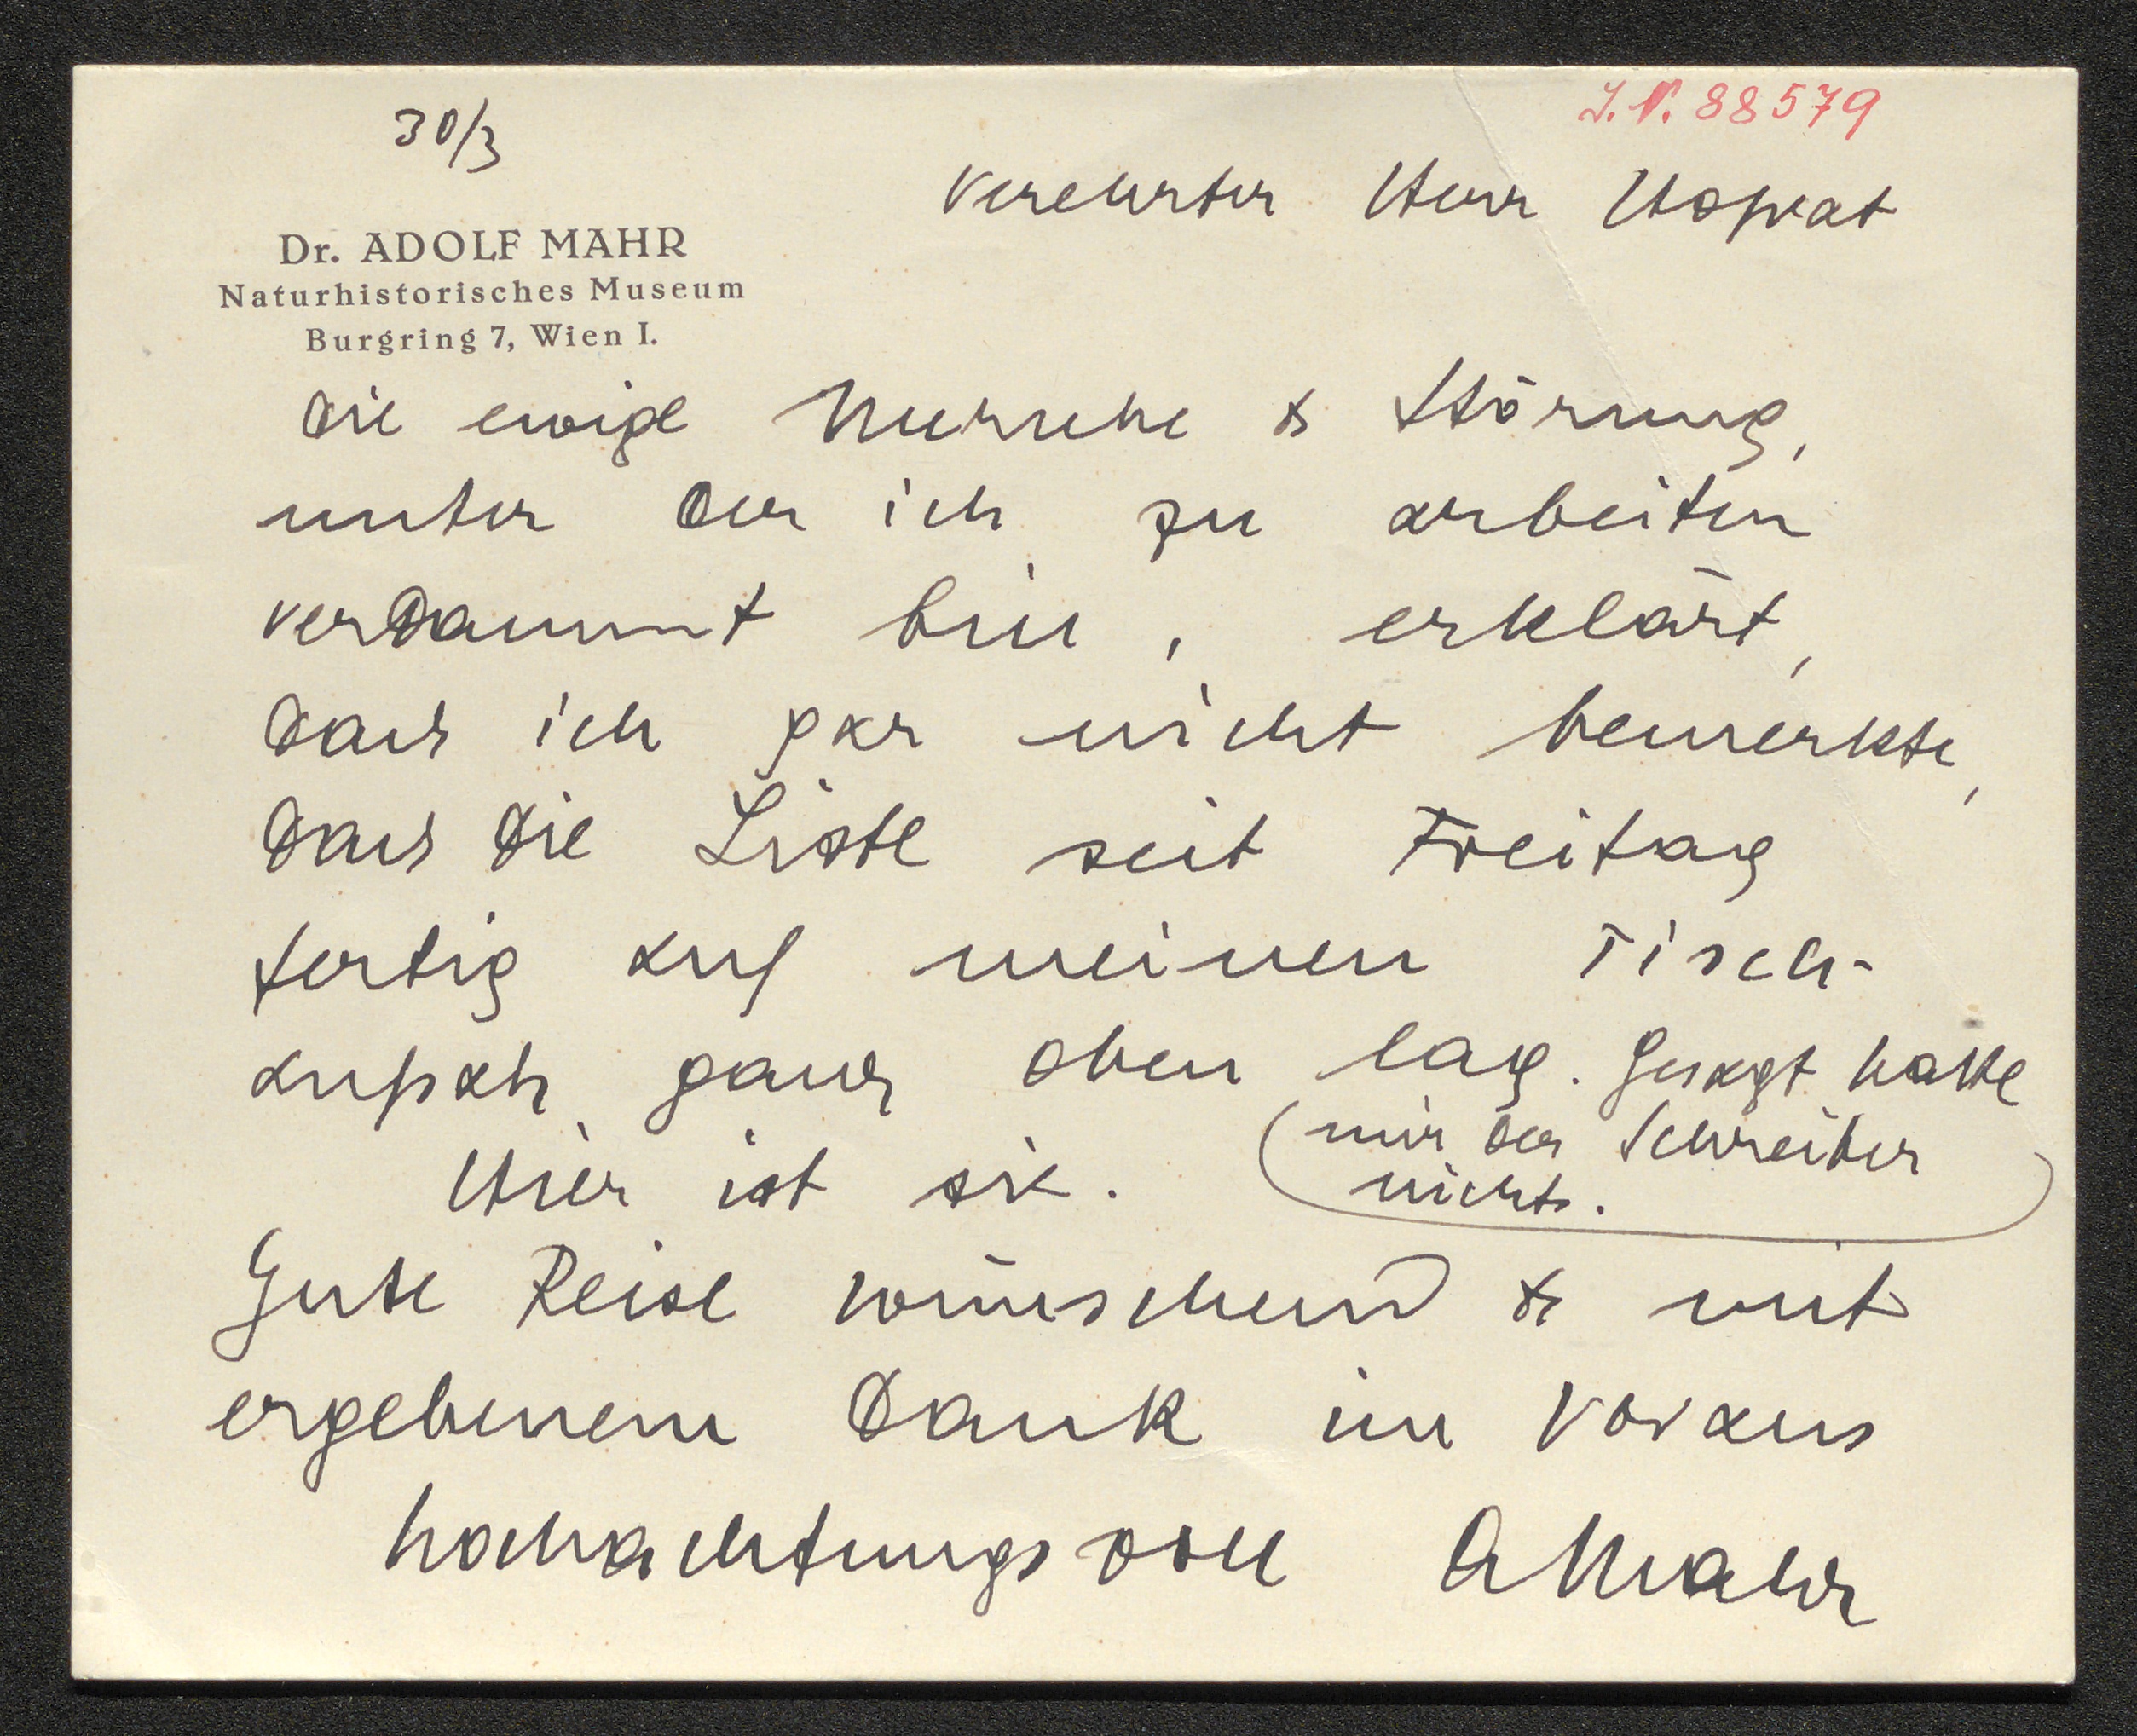 30/3
J.N. 88579
Verehrter Herr Hofrat
Dr. ADOLF MAHR
Naturhistorisches Museum
Burgring 7, Wien I.
die ewige Unruhe & Störung,
unter der ich zu arbeiten
verdammt bin, erklärt,
dass ich gar nicht bemerkte,
dass die Liste seit Freitag
fertig auf meinen Tisch-
aufsatz ganz oben lag. Gesagt hatte
mir der Schreiber
nichts.
Hier ist sie.
Gute Reise wünschend & mit
ergebenem Dank im Voraus
hochachtungsvoll AMahr